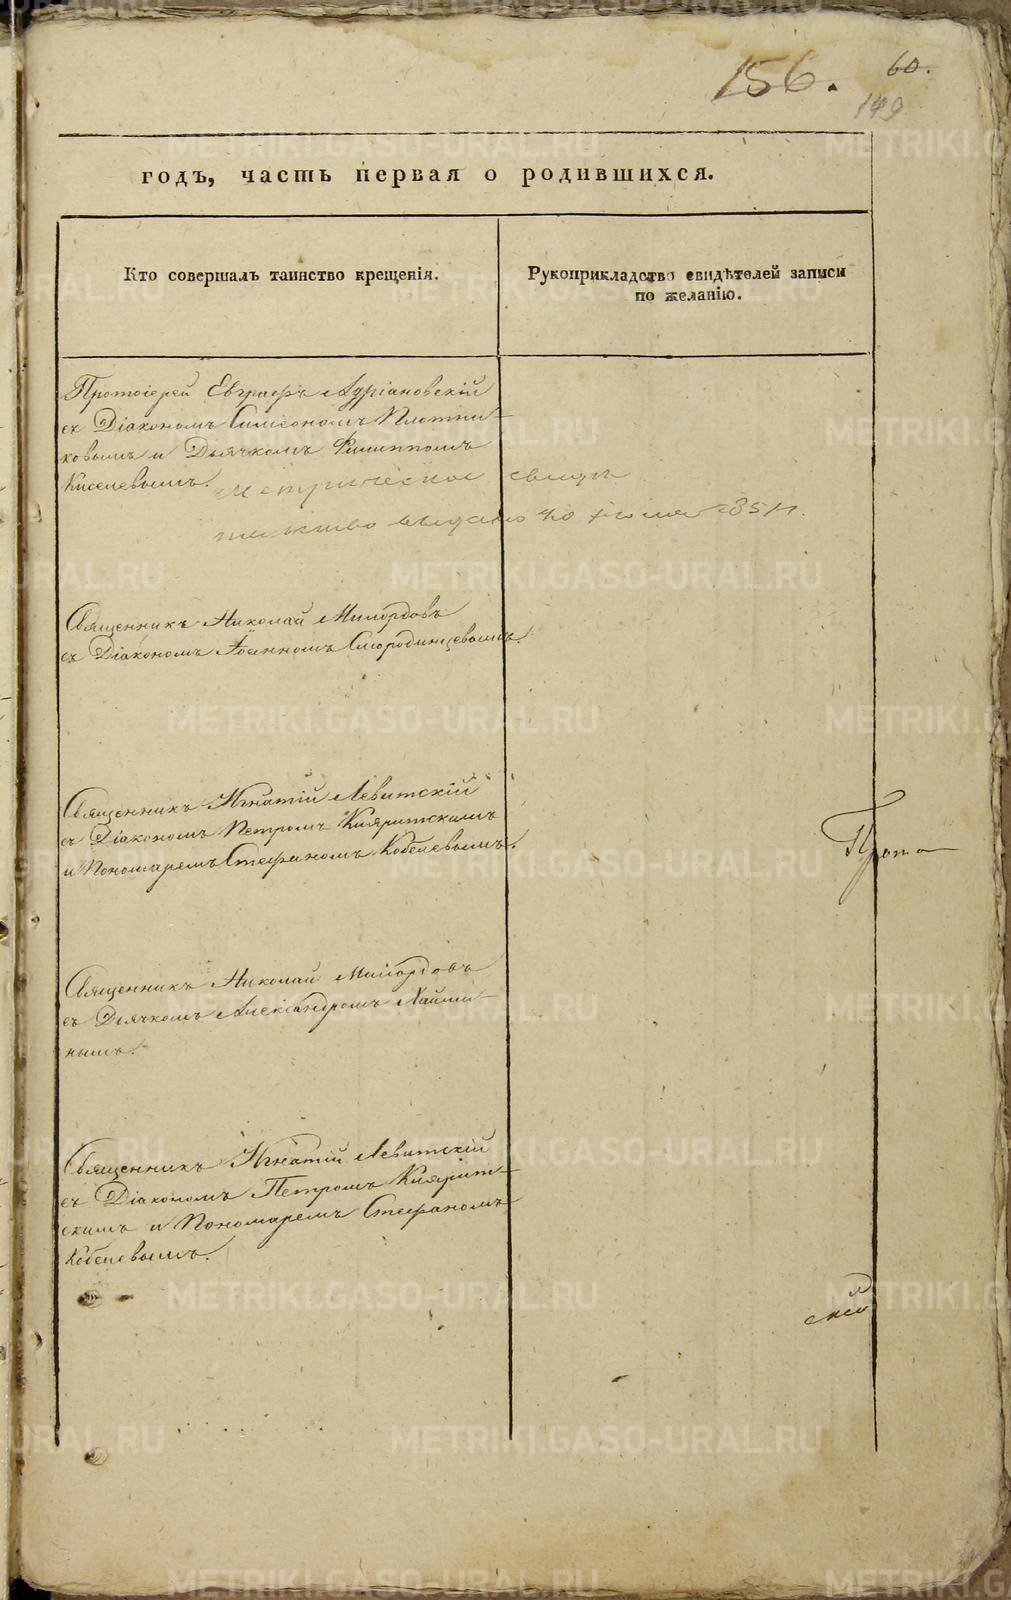 156.
60.
149
годъ, часть первая о родившихся.
Кто совершалъ таинство крещенія.
Рукоприкладство свидѣтелей записи
по желанію.
Протоіерей Евграфъ Адріановскій
съ Діакономъ Симеономъ Плотни-
ковымъ и Дьячкомъ Филиппомъ
Киселевымъ.
Метрическое свидѣ
тельство выдано
Священникъ Николай Милордовъ
съ Діакономъ Іоанномъ Смородинцевымъ.
Священникъ Игнатій Левитскій
съ Діакономъ Петромъ Кияритскимъ
и Пономаремъ Стефаномъ Кобелевымъ.
Прото
Священникъ Николай Милордовъ
съ Дьячкомъ Александромъ
нымъ.
Священникъ Игнатій Левитскій
съ Діакономъ Петромъ Киярит-
скимъ и Пономаремъ Стефаномъ
Кобелевымъ.
METRIKI.GASO-URAL.RU